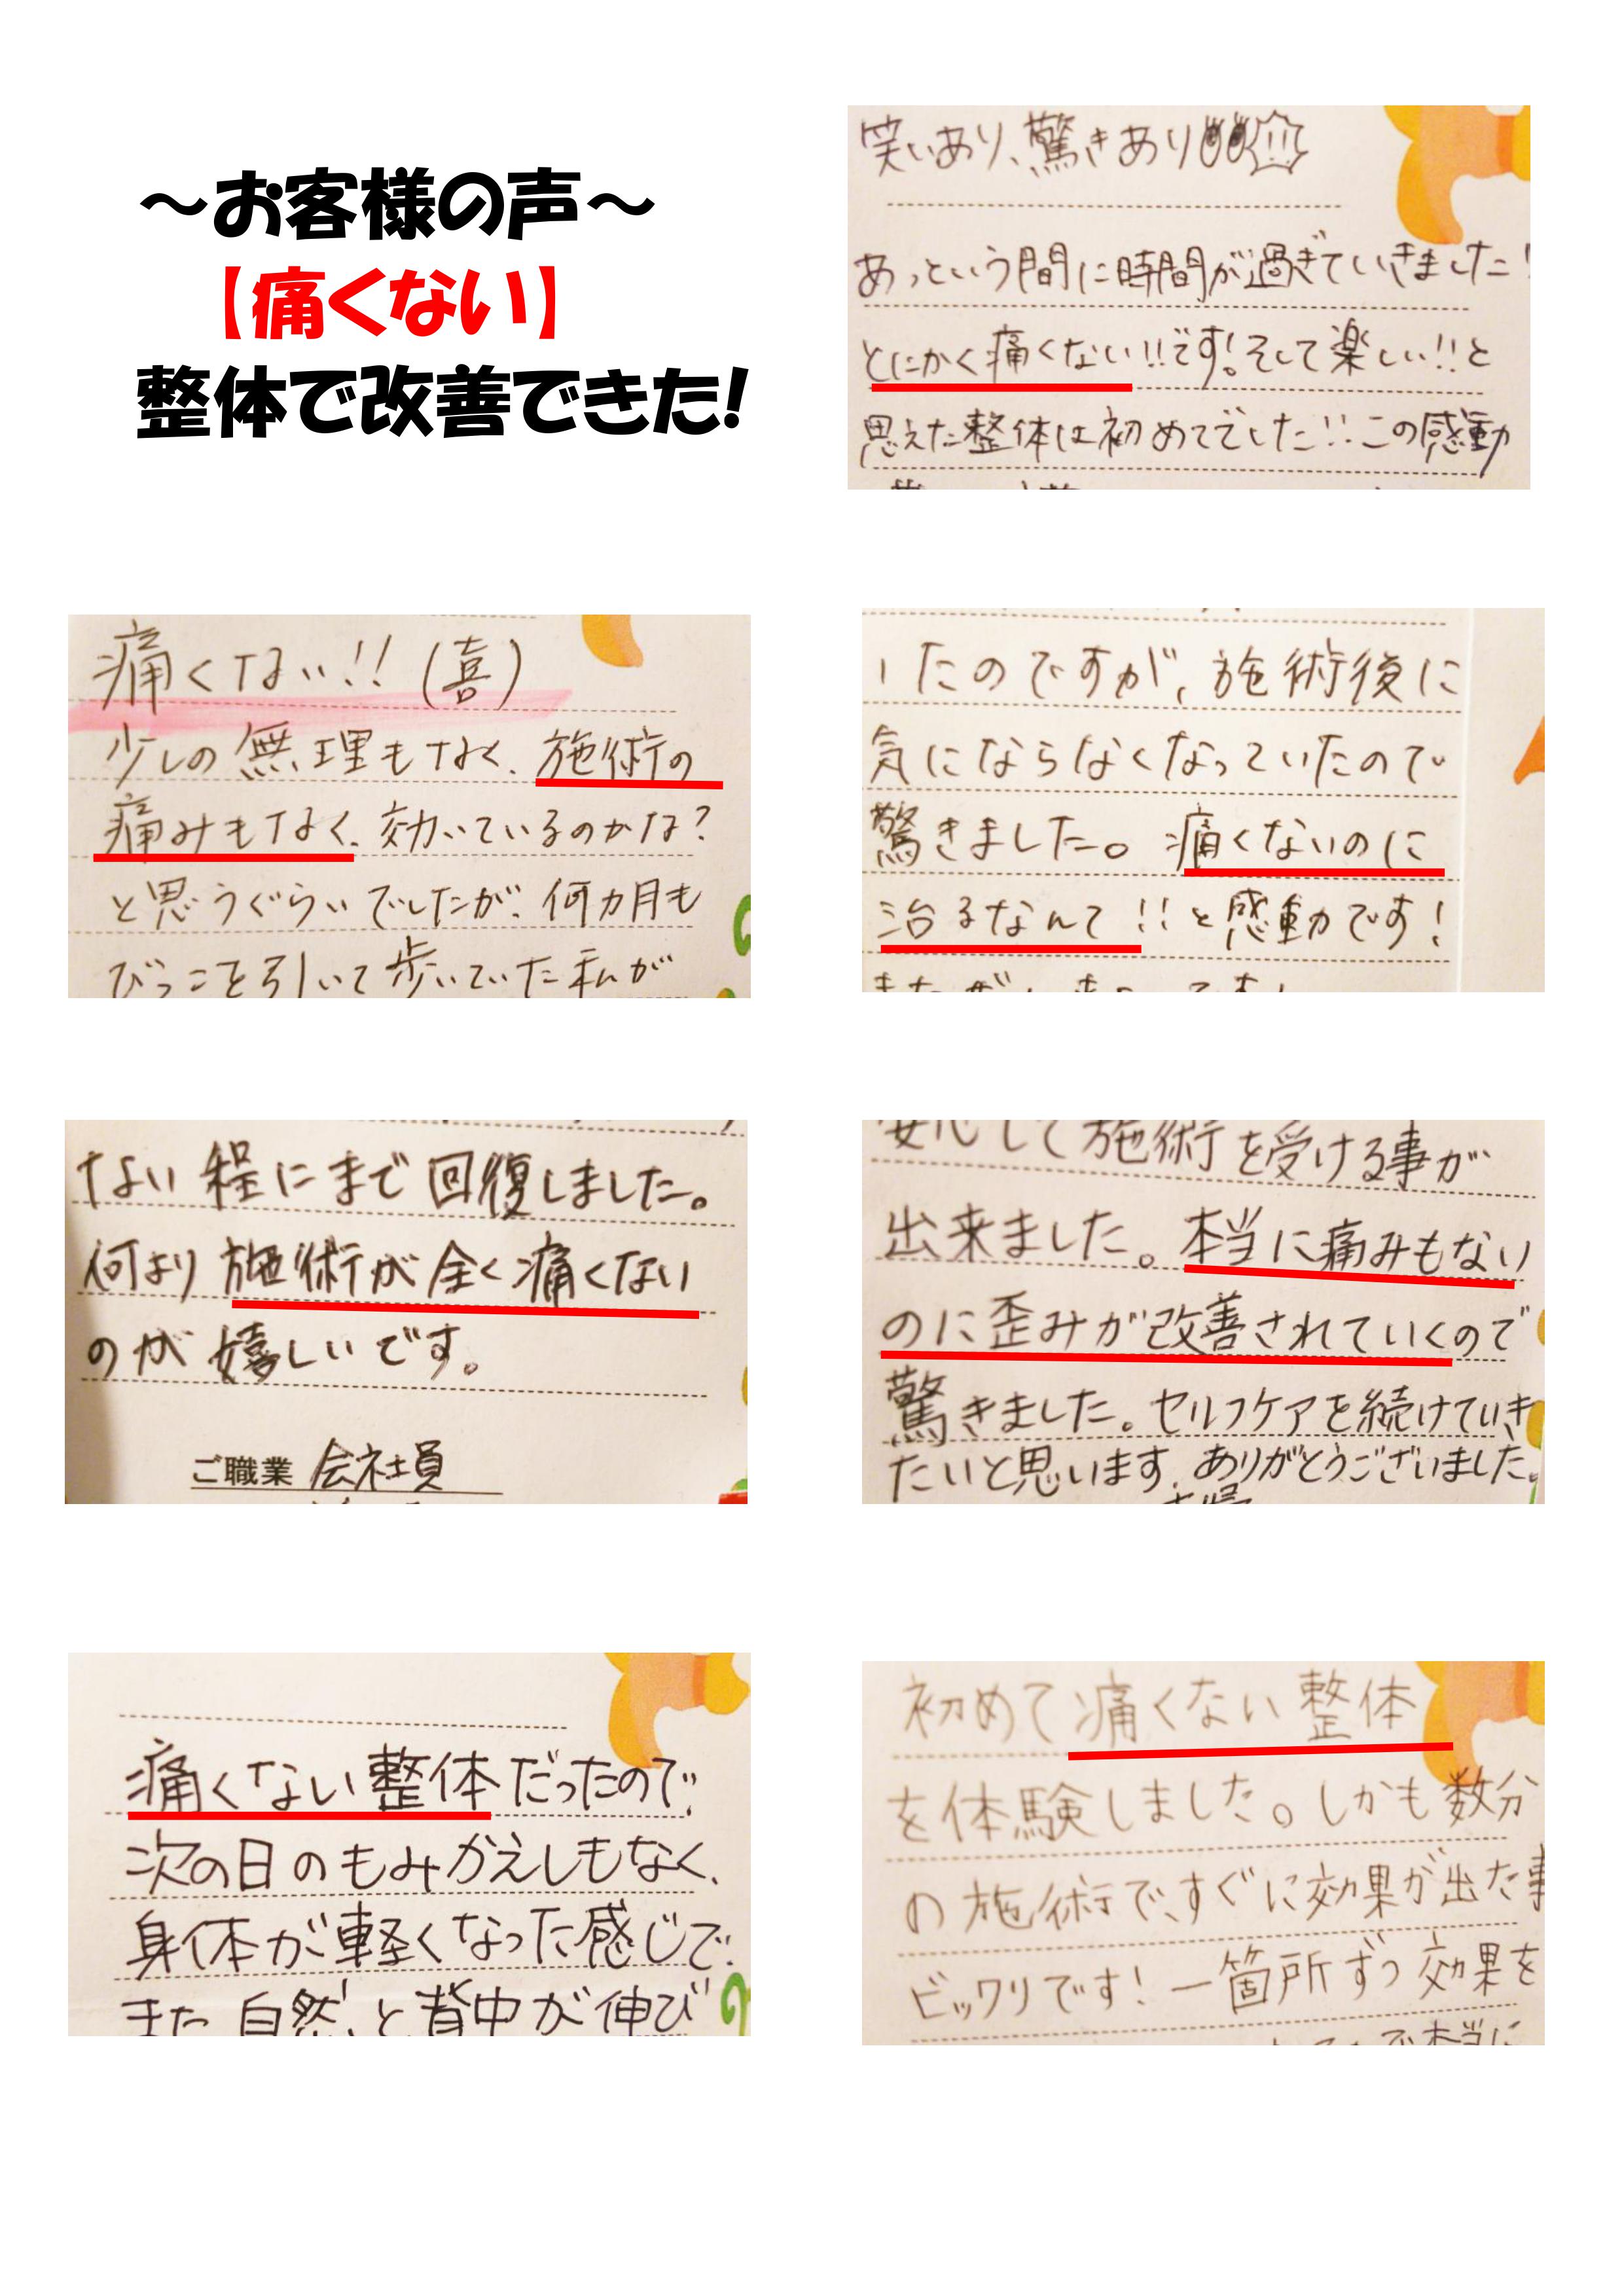 ～お客様の声～
【痛くない】
整体で改善できた!
笑いあり、驚きあり
あっという間に時間が過ぎていきました!
とにかく痛くない!!です!そして楽しい!!と
思えた整体は初めてでした!!この感動
痛くない!!(喜)
少しの無理もなく、施術の
痛みもなく、効いているのかな?
と思うぐらいでしたが、何ヵ月も
びっこを引いて歩いていた私が
したのですが、施術後に
気にならなくなっていたので
驚きました。痛くないのに
治るなんて!!と感動です!
ない程にまで回復しました。
何より施術が全く痛くない
のが嬉しいです。
ご職業 会社員
安心して施術を受ける事が
出来ました。本当に痛みもない
のに歪みが改善されていくので
驚きました。セルフケアを続けていき
たいと思います。ありがとうございました。
痛くない整体だったので、
次の日のもみかえしもなく、
身体が軽くなった感じで、
また自然と背中が伸び
初めて痛くない整体
を体験しました。しかも数分
の施術で、すぐに効果が出た事
ビックリです!一箇所ずつ効果を
で本当に